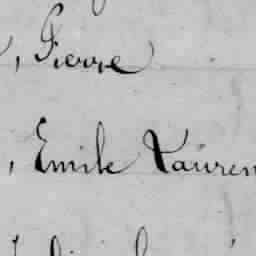 , Pierre
, Emile Lauren